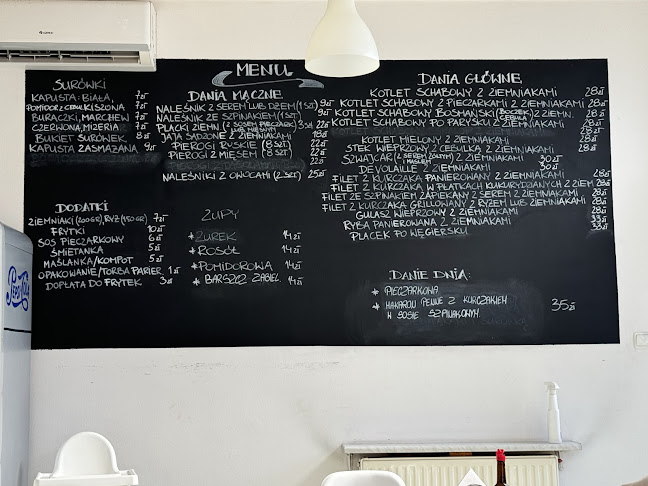 MENU
SURÓWKI
KAPUSTA: BIAŁA, 7zł
POMIDOR Z CEBULĄ KISZONA 7zł
BURACZKI, MARCHEW 7zł
CZERWONA, MIZERIA 7zł
BUKIET SURÓWEK 8zł
KAPUSTA ZASMAŻANA 9zł
DODATKI
ZIEMNIAKI (200GR), RYŻ (150GR) 7zł
FRYTKI 10zł
SOS PIECZARKOWY 6zł
ŚMIETANKA 5zł
MAŚLANKA/KOMPOT 5zł
OPAKOWANIE/TORBA PAPIER. 1zł
DOPŁATA DO FRYTEK 3zł
DANIA MĄCZNE
NALEŚNIK Z SEREM LUB DŻEM (1SZT) 9zł
NALEŚNIK ZE SZPINAKIEM (1SZT) 9zł
PLACKI ZIEMN (Z SOSEM PIECZARK) 22zł
JAJA SADZONE Z ZIEMNIAKAMI 18zł
PIEROGI RUSKIE (8SZT) 22zł
PIEROGI Z MIĘSEM (8SZT) 22zł
22zł
NALEŚNIKI Z OWOCAMI (2SZT) 25zł
ZUPY
* ŻUREK 14zł
* ROSÓŁ 14zł
* POMIDOROWA 14zł
* BARSZCZ ZABIEL. 14zł
DANIA GŁÓWNE
KOTLET SCHABOWY Z ZIEMNIAKAMI 28zł
KOTLET SCHABOWY Z PIECZARKAMI Z ZIEMNIAKAMI 28zł
KOTLET SCHABOWY BOSMAŃSKI (BOCZEK, CEBULA) Z ZIEMN. 28zł
KOTLET SCHABOWY PO PARYSKU Z ZIEMNIAKAMI 28zł
KOTLET MIELONY Z ZIEMNIAKAMI 28zł
STEK WIEPRZOWY Z CEBULKĄ Z ZIEMNIAKAMI 28zł
SZWAJCAR (Z SEREM ŻÓŁTYM I MASŁEM) Z ZIEMNIAKAMI 30zł
DEVOLAILLE Z ZIEMNIAKAMI 30zł
FILET Z KURCZAKA PANIEROWANY Z ZIEMNIAKAMI 28zł
FILET Z KURCZAKA W PŁATKACH KUKURYDZIANYCH Z ZIEM. 28zł
FILET ZE SZPINAKIEM ZAPIEKANY SEREM Z ZIEMNIAKAMI 28zł
FILET Z KURCZAKA GRILLOWANY Z RYŻEM LUB ZIEMNIAKAMI 28zł
GULASZ WIEPRZOWY Z ZIEMNIAKAMI 28zł
RYBA PANIEROWANA Z ZIEMNIAKAMI 33zł
PLACEK PO WĘGIERSKU 33zł
DANIE DNIA:
* PIECZARKOWA
* MAKARON PENNE Z KURCZAKIEM
W SOSIE SZPINAKOWYM 35zł